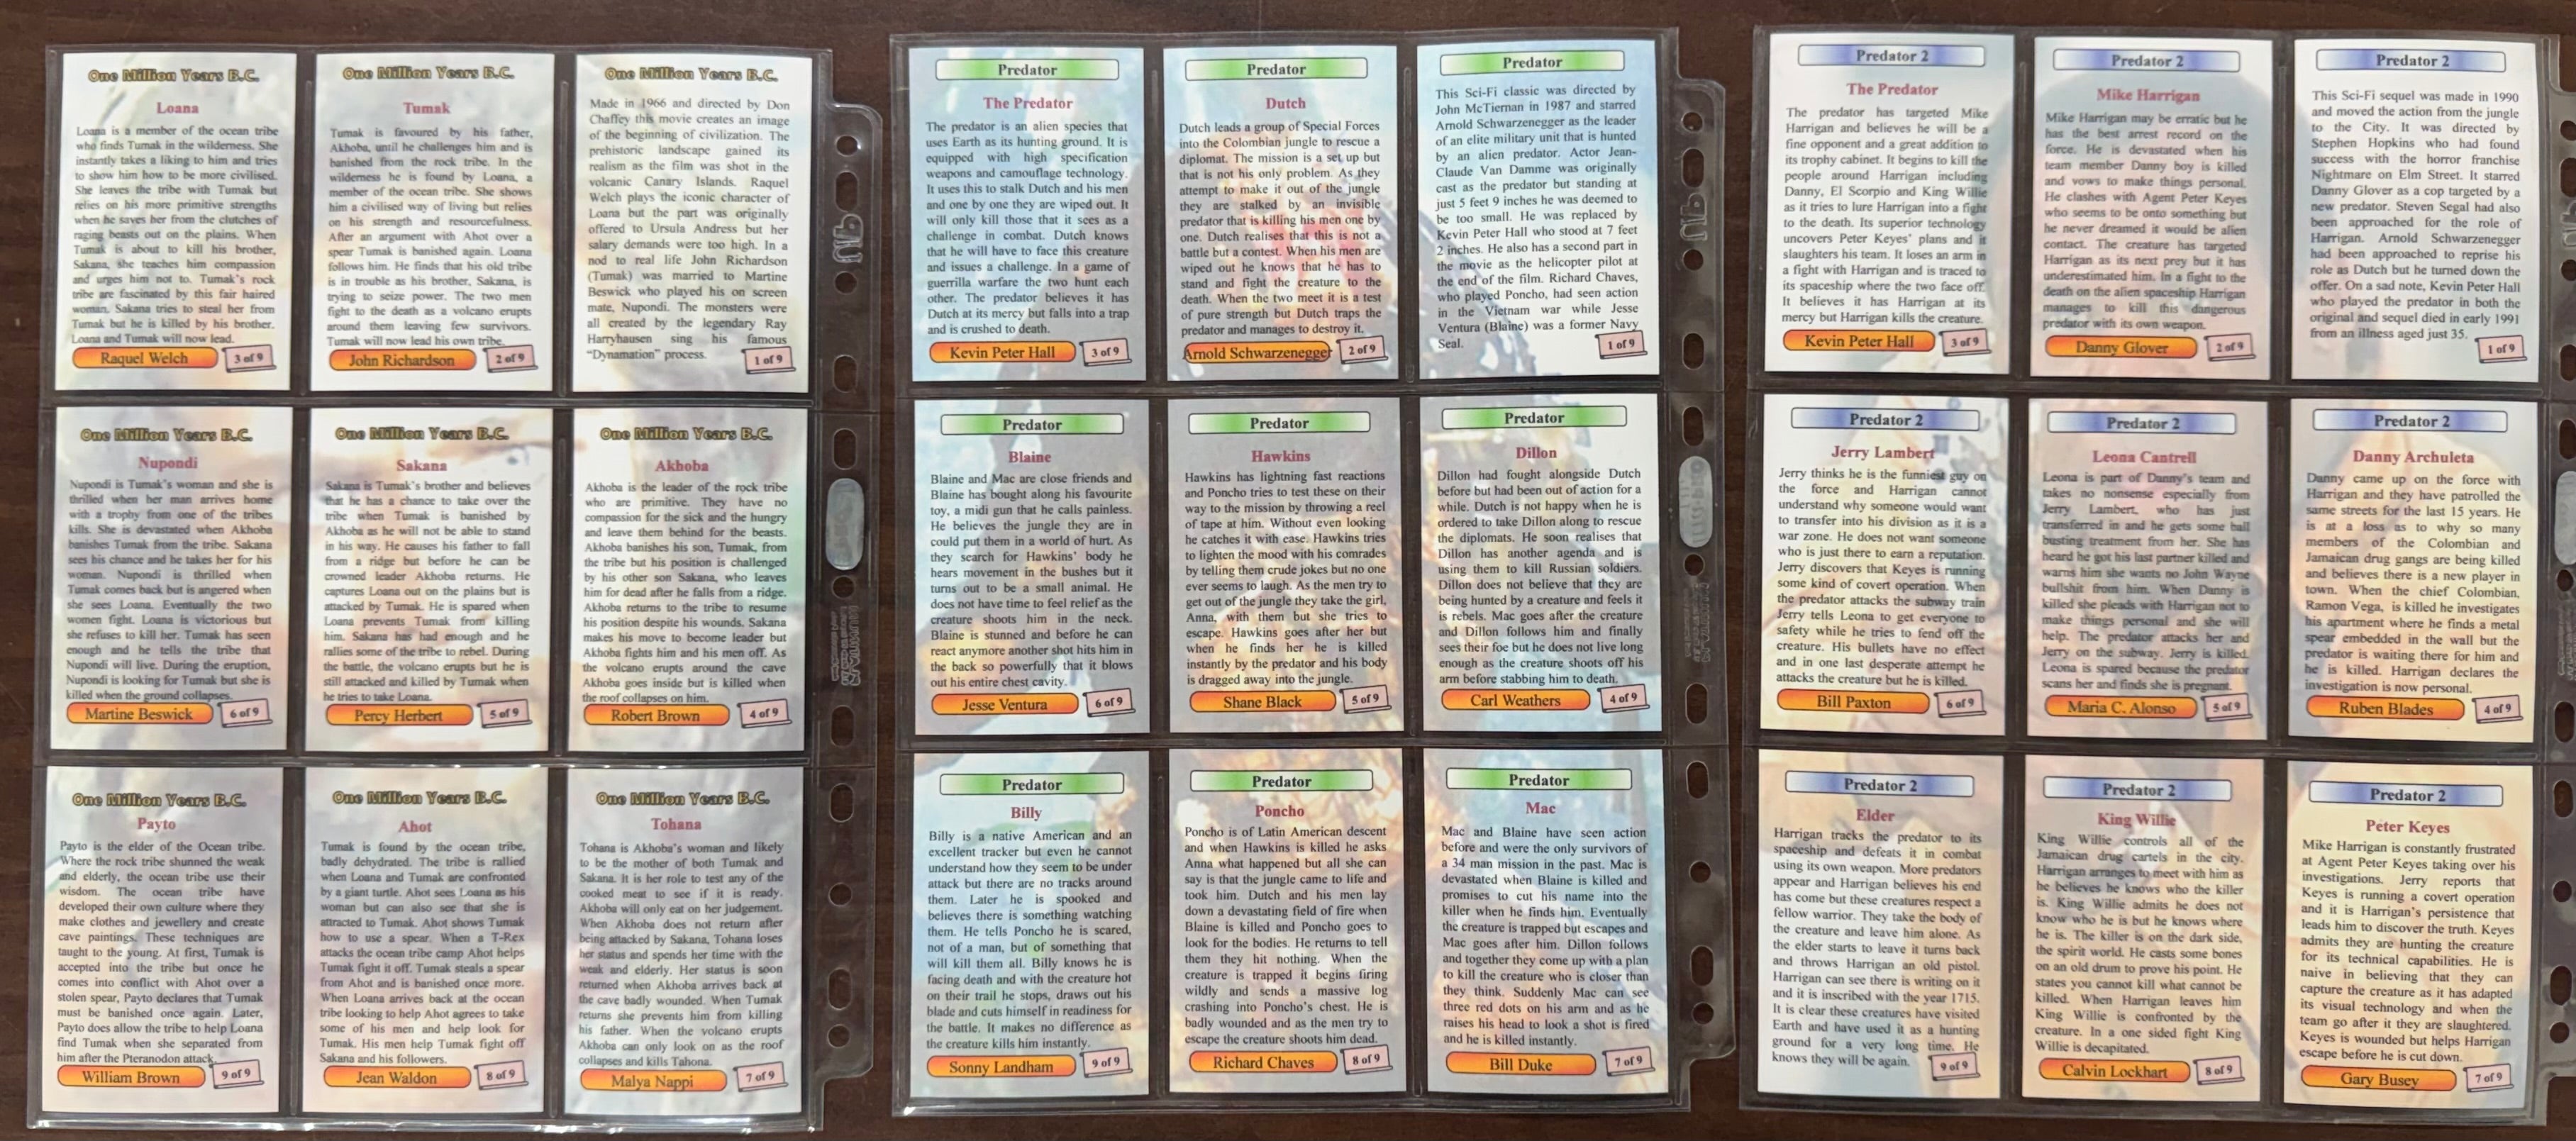 One Million Years B.C.
Loana
Loana is a member of the ocean tribe
who finds Tumak in the wilderness. She
instantly takes a liking to him and tries
to show him how to be more civilised.
She leaves the tribe with Tumak but
relies on his more primitive strengths
when he saves her from the clutches of
raging beasts out on the plains. When
Tumak is about to kill his brother,
Sakana, she teaches him compassion
and urges him not to. Tumak's rock
tribe are fascinated by this fair haired
woman. Sakana tries to steal her from
Tumak but he is killed by his brother.
Loana and Tumak will now lead.
Raquel Welch
3 of 9
One Million Years B.C.
Tumak
Tumak is favoured by his father,
Akhoba, until he challenges him and is
banished from the rock tribe. In the
wilderness he is found by Loana, a
member of the ocean tribe. She shows
him a civilised way of living but relies
on his strength and resourcefulness.
After an argument with Ahot over a
spear Tumak is banished again. Loana
follows him. He finds that his old tribe
is in trouble as his brother, Sakana, is
trying to seize power. The two men
fight to the death as a volcano erupts
around them leaving few survivors.
Tumak will now lead his own tribe.
John Richardson
2 of 9
One Million Years B.C.
Made in 1966 and directed by Don
Chaffey this movie creates an image
of the beginning of civilization. The
prehistoric landscape gained its
realism as the film was shot in the
volcanic Canary Islands. Raquel
Welch plays the iconic character of
Loana but the part was originally
offered to Ursula Andress but her
salary demands were too high. In a
nod to real life John Richardson
(Tumak) was married to Martine
Beswick who played his on screen
mate, Nupondi. The monsters were
all created by the legendary Ray
Harryhausen sing his famous
"Dynamation" process.
1 of 9
One Million Years B.C.
Nupondi
Nupondi is Tumak's woman and she is
thrilled when her man arrives home
with a trophy from one of the tribes
kills. She is devastated when Akhoba
banishes Tumak from the tribe. Sakana
sees his chance and he takes her for his
woman. Nupondi is thrilled when
Tumak comes back but is angered when
she sees Loana. Eventually the two
women fight. Loana is victorious but
she refuses to kill her. Tumak has seen
enough and he tells the tribe that
Nupondi will live. During the eruption,
Nupondi is looking for Tumak but she is
killed when the ground collapses.
Martine Beswick
6 of 9
One Million Years B.C.
Sakana
Sakana is Tumak's brother and believes
that he has a chance to take over the
tribe when Tumak is banished by
Akhoba as he will not be able to stand
in his way. He causes his father to fall
from a ridge but before he can be
crowned leader Akhoba returns. He
captures Loana out on the plains but is
attacked by Tumak. He is spared when
Loana prevents Tumak from killing
him. Sakana has had enough and he
rallies some of the tribe to rebel. During
the battle, the volcano erupts but he is
still attacked and killed by Tumak when
he tries to take Loana.
Percy Herbert
5 of 9
One Million Years B.C.
Akhoba
Akhoba is the leader of the rock tribe
who are primitive. They have no
compassion for the sick and the hungry
and leave them behind for the beasts.
Akhoba banishes his son, Tumak, from
the tribe but his position is challenged
by his other son Sakana, who leaves
him for dead after he falls from a ridge.
Akhoba returns to the tribe to resume
his position despite his wounds. Sakana
makes his move to become leader but
Akhoba fights him and his men off. As
the volcano erupts around the cave
Akhoba goes inside but is killed when
the roof collapses on him.
Robert Brown
4 of 9
One Million Years B.C.
Payto
Payto is the elder of the Ocean tribe.
Where the rock tribe shunned the weak
and elderly, the ocean tribe use their
wisdom. The ocean tribe have
developed their own culture where they
make clothes and jewellery and create
cave paintings. These techniques are
taught to the young. At first, Tumak is
accepted into the tribe but once he
comes into conflict with Ahot over a
stolen spear, Payto declares that Tumak
must be banished once again. Later,
Payto does allow the tribe to help Loana
find Tumak when she separated from
him after the Pteranodon attack.
William Brown
9 of 9
One Million Years B.C.
Ahot
Tumak is found by the ocean tribe,
badly dehydrated. The tribe is rallied
when Loana and Tumak are confronted
by a giant turtle. Ahot sees Loana as his
woman but can also see that she is
attracted to Tumak. Ahot shows Tumak
how to use a spear. When a T-Rex
attacks the ocean tribe camp Ahot helps
Tumak fight it off. Tumak steals a spear
from Ahot and is banished once more.
When Loana arrives back at the ocean
tribe looking to help Ahot agrees to take
some of his men and help look for
Tumak. His men help Tumak fight off
Sakana and his followers.
Jean Waldon
8 of 9
One Million Years B.C.
Tohana
Tohana is Akhoba's woman and likely
to be the mother of both Tumak and
Sakana. It is her role to test any of the
cooked meat to see if it is ready.
Akhoba will only eat on her judgement.
When Akhoba does not return after
being attacked by Sakana, Tohana loses
her status and spends her time with the
weak and elderly. Her status is soon
returned when Akhoba arrives back at
the cave badly wounded. When Tumak
returns she prevents him from killing
his father. When the volcano erupts
Akhoba can only look on as the roof
collapses and kills Tahona.
Malya Nappi
7 of 9
Predator
The Predator
The predator is an alien species that
uses Earth as its hunting ground. It is
equipped with high specification
weapons and camouflage technology.
It uses this to stalk Dutch and his men
and one by one they are wiped out. It
will only kill those that it sees as a
challenge in combat. Dutch knows
that he will have to face this creature
and issues a challenge. In a game of
guerrilla warfare the two hunt each
other. The predator believes it has
Dutch at its mercy but falls into a trap
and is crushed to death.
Kevin Peter Hall
3 of 9
Predator
Dutch
Dutch leads a group of Special Forces
into the Colombian jungle to rescue a
diplomat. The mission is a set up but
that is not his only problem. As they
attempt to make it out of the jungle
they are stalked by an invisible
predator that is killing his men one by
one. Dutch realises that this is not a
battle but a contest. When his men are
wiped out he knows that he has to
stand and fight the creature to the
death. When the two meet it is a test
of pure strength but Dutch traps the
predator and manages to destroy it.
Arnold Schwarzenegger
2 of 9
Predator
This Sci-Fi classic was directed by
John McTiernan in 1987 and starred
Arnold Schwarzenegger as the leader
of an elite military unit that is hunted
by an alien predator. Actor Jean-
Claude Van Damme was originally
cast as the predator but standing at
just 5 feet 9 inches he was deemed to
be too small. He was replaced by
Kevin Peter Hall who stood at 7 feet
2 inches. He also has a second part in
the movie as the helicopter pilot at
the end of the film. Richard Chaves,
who played Poncho, had seen action
in the Vietnam war while Jesse
Ventura (Blaine) was a former Navy
Seal.
1 of 9
Predator
Blaine
Blaine and Mac are close friends and
Blaine has bought along his favourite
toy, a midi gun that he calls painless.
He believes the jungle they are in
could put them in a world of hurt. As
they search for Hawkins' body he
hears movement in the bushes but it
turns out to be a small animal. He
does not have time to feel relief as the
creature shoots him in the neck.
Blaine is stunned and before he can
react anymore another shot hits him in
the back so powerfully that it blows
out his entire chest cavity.
Jesse Ventura
6 of 9
Predator
Hawkins
Hawkins has lightning fast reactions
and Poncho tries to test these on their
way to the mission by throwing a reel
of tape at him. Without even looking
he catches it with ease. Hawkins tries
to lighten the mood with his comrades
by telling them crude jokes but no one
ever seems to laugh. As the men try to
get out of the jungle they take the girl,
Anna, with them but she tries to
escape. Hawkins goes after her but
when he finds her he is killed
instantly by the predator and his body
is dragged away into the jungle.
Shane Black
5 of 9
Predator
Dillon
Dillon had fought alongside Dutch
before but had been out of action for a
while. Dutch is not happy when he is
ordered to take Dillon along to rescue
the diplomats. He soon realises that
Dillon has another agenda and is
using them to kill Russian soldiers.
Dillon does not believe that they are
being hunted by a creature and feels it
is rebels. Mac goes after the creature
and Dillon follows him and finally
sees their foe but he does not live long
enough as the creature shoots off his
arm before stabbing him to death.
Carl Weathers
4 of 9
Predator
Billy
Billy is a native American and an
excellent tracker but even he cannot
understand how they seem to be under
attack but there are no tracks around
them. Later he is spooked and
believes there is something watching
them. He tells Poncho he is scared,
not of a man, but of something that
will kill them all. Billy knows he is
facing death and with the creature hot
on their trail he stops, draws out his
blade and cuts himself in readiness for
the battle. It makes no difference as
the creature kills him instantly.
Sonny Landham
9 of 9
Predator
Poncho
Poncho is of Latin American descent
and when Hawkins is killed he asks
Anna what happened but all she can
say is that the jungle came to life and
took him. Dutch and his men lay
down a devastating field of fire when
Blaine is killed and Poncho goes to
look for the bodies. He returns to tell
them they hit nothing. When the
creature is trapped it begins firing
wildly and sends a massive log
crashing into Poncho's chest. He is
badly wounded and as the men try to
escape the creature shoots him dead.
Richard Chaves
8 of 9
Predator
Mac
Mac and Blaine have seen action
before and were the only survivors of
a 34 man mission in the past. Mac is
devastated when Blaine is killed and
promises to cut his name into the
killer when he finds him. Eventually
the creature is trapped but escapes and
Mac goes after him. Dillon follows
and together they come up with a plan
to kill the creature who is closer than
they think. Suddenly Mac can see
three red dots on his arm and as he
raises his head to look a shot is fired
and he is killed instantly.
Bill Duke
7 of 9
Predator 2
The Predator
The predator has targeted Mike
Harrigan and believes he will be a
fine opponent and a great addition to
its trophy cabinet. It begins to kill the
people around Harrigan including
Danny, El Scorpio and King Willie
as it tries to lure Harrigan into a fight
to the death. Its superior technology
uncovers Peter Keyes' plans and it
slaughters his team. It loses an arm in
a fight with Harrigan and is traced to
its spaceship where the two face off.
It believes it has Harrigan at its
mercy but Harrigan kills the creature.
Kevin Peter Hall
3 of 9
Predator 2
Mike Harrigan
Mike Harrigan may be erratic but he
has the best arrest record on the
force. He is devastated when his
team member Danny boy is killed
and vows to make things personal.
He clashes with Agent Peter Keyes
who seems to be onto something but
he never dreamed it would be alien
contact. The creature has targeted
Harrigan as its next prey but it has
underestimated him. In a fight to the
death on the alien spaceship Harrigan
manages to kill this dangerous
predator with its own weapon.
Danny Glover
2 of 9
Predator 2
This Sci-Fi sequel was made in 1990
and moved the action from the jungle
to the City. It was directed by
Stephen Hopkins who had found
success with the horror franchise
Nightmare on Elm Street. It starred
Danny Glover as a cop targeted by a
new predator. Steven Segal had also
been approached for the role of
Harrigan. Arnold Schwarzenegger
had been approached to reprise his
role as Dutch but he turned down the
offer. On a sad note, Kevin Peter Hall
who played the predator in both the
original and sequel died in early 1991
from an illness aged just 35.
1 of 9
Predator 2
Jerry Lambert
Jerry thinks he is the funniest guy on
the force and Harrigan cannot
understand why someone would want
to transfer into his division as it is a
war zone. He does not want someone
who is just there to earn a reputation.
Jerry discovers that Keyes is running
some kind of covert operation. When
the predator attacks the subway train
Jerry tells Leona to get everyone to
safety while he tries to fend off the
creature. His bullets have no effect
and in one last desperate attempt he
attacks the creature but he is killed.
Bill Paxton
6 of 9
Predator 2
Leona Cantrell
Leona is part of Danny's team and
takes no nonsense especially from
Jerry Lambert, who has just
transferred in and he gets some ball
busting treatment from her. She has
heard he got his last partner killed and
warns him she wants no John Wayne
bullshit from him. When Danny is
killed she pleads with Harrigan not to
make things personal and she will
help. The predator attacks her and
Jerry on the subway. Jerry is killed.
Leona is spared because the predator
scans her and finds she is pregnant.
Maria C. Alonso
5 of 9
Predator 2
Danny Archuleta
Danny came up on the force with
Harrigan and they have patrolled the
same streets for the last 15 years. He
is at a loss as to why so many
members of the Colombian and
Jamaican drug gangs are being killed
and believes there is a new player in
town. When the chief Colombian,
Ramon Vega, is killed he investigates
his apartment where he finds a metal
spear embedded in the wall but the
predator is waiting there for him and
he is killed. Harrigan declares the
investigation is now personal.
Ruben Blades
4 of 9
Predator 2
Elder
Harrigan tracks the predator to its
spaceship and defeats it in combat
using its own weapon. More predators
appear and Harrigan believes his end
has come but these creatures respect a
fellow warrior. They take the body of
the creature and leave him alone. As
the elder starts to leave it turns back
and throws Harrigan an old pistol.
Harrigan can see there is writing on it
and it is inscribed with the year 1715.
It is clear these creatures have visited
Earth and have used it as a hunting
ground for a very long time. He
knows they will be again.
9 of 9
Predator 2
King Willie
King Willie controls all of the
Jamaican drug cartels in the city.
Harrigan arranges to meet with him as
he believes he knows who the killer
is. King Willie admits he does not
know who he is but he knows where
he is. The killer is on the dark side,
the spirit world. He casts some bones
on an old drum to prove his point. He
states you cannot kill what cannot be
killed. When Harrigan leaves him
King Willie is confronted by the
creature. In a one sided fight King
Willie is decapitated.
Calvin Lockhart
8 of 9
Predator 2
Peter Keyes
Mike Harrigan is constantly frustrated
at Agent Peter Keyes taking over his
investigations. Jerry reports that
Keyes is running a covert operation
and it is Harrigan's persistence that
leads him to discover the truth. Keyes
admits they are hunting the creature
for its technical capabilities. He is
naive in believing that they can
capture the creature as it has adapted
its visual technology and when the
team go after it they are slaughtered.
Keyes is wounded but helps Harrigan
escape before he is cut down.
Gary Busey
7 of 9